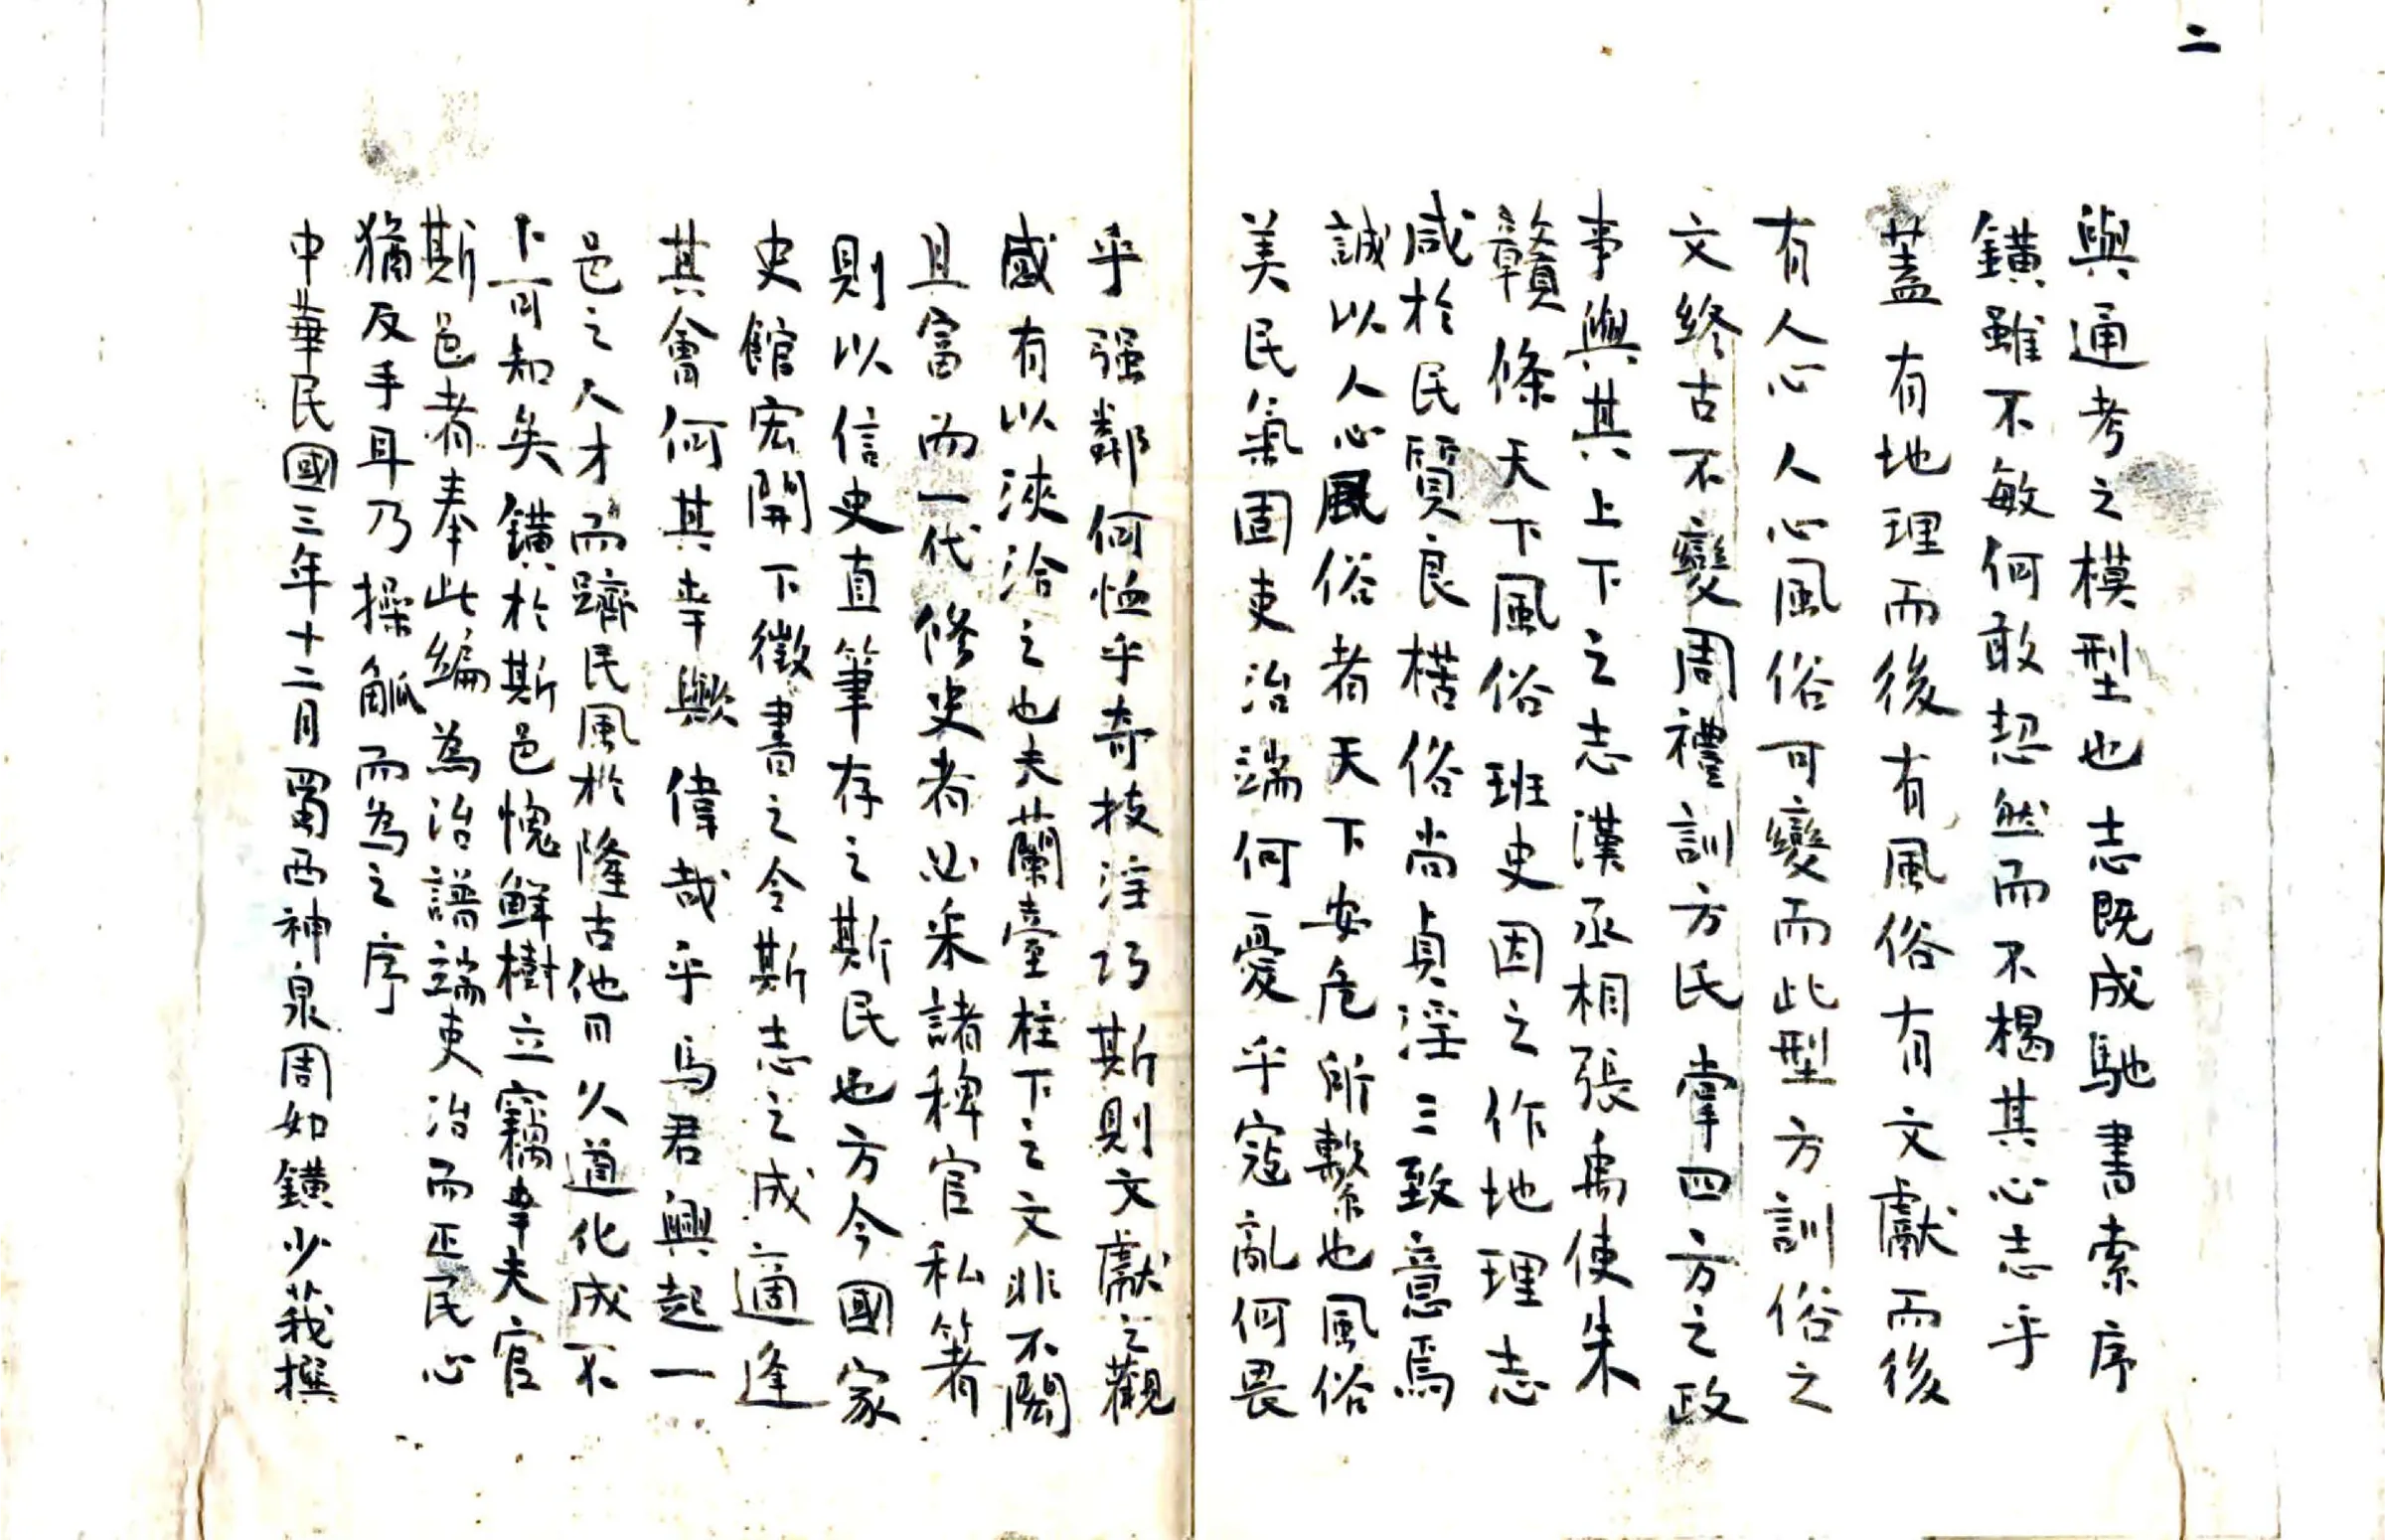 二
與通考之模型也志既成馳書索序
鐄雖不敏何敢恝然而不楬其心志乎
蓋有地理而後有風俗有文獻而後
有人心人心風俗可變而此型方訓俗之
文終古不變周禮訓方氏掌四方之政
事與其上下之志漢丞相張禹使朱
贛條天下風俗班史因之作地理志
咸於民質良楛俗尚貞淫三致意焉
誠以人心風俗者天下安危所繫也風俗
美民氣固吏治端何憂乎寇亂何畏
乎强鄰何恤乎奇技淫巧斯則文獻之觀
感有以浹洽之也夫蘭臺柱下之文非不閎
且富而一代修史者必采諸稗官私著
則以信史直筆存之斯民也方今國家
史館宏開下徵書之令斯志之成適逢
其會何其幸歟偉哉乎馬君興起一
邑之人才而躋民風於隆古他日久道化成不
卜可知矣鐄於斯邑愧鮮樹立竊幸夫官
斯邑者奉此編為治譜端吏治而正民心
猶反手耳乃操觚而為之序
中華民國三年十二月蜀西神泉周如鐄少莪撰